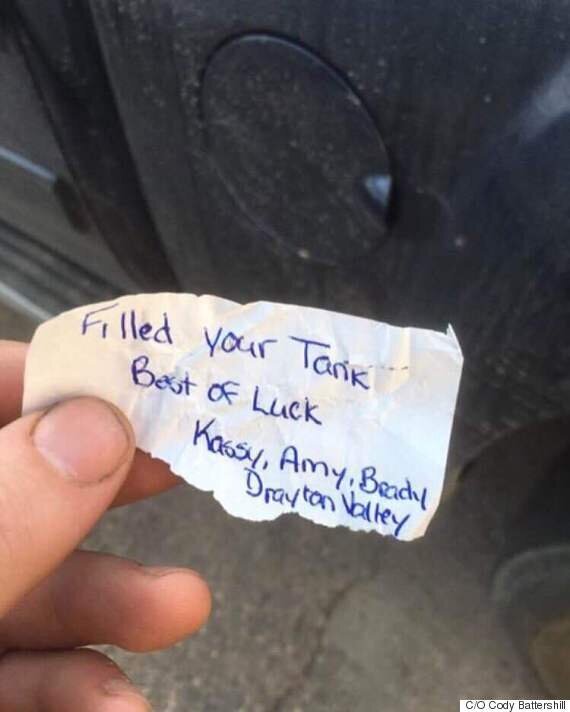 Filled your Tank
Best of Luck
Kassy, Amy, Brady
Drayton Valley
C/O Cody Battershill